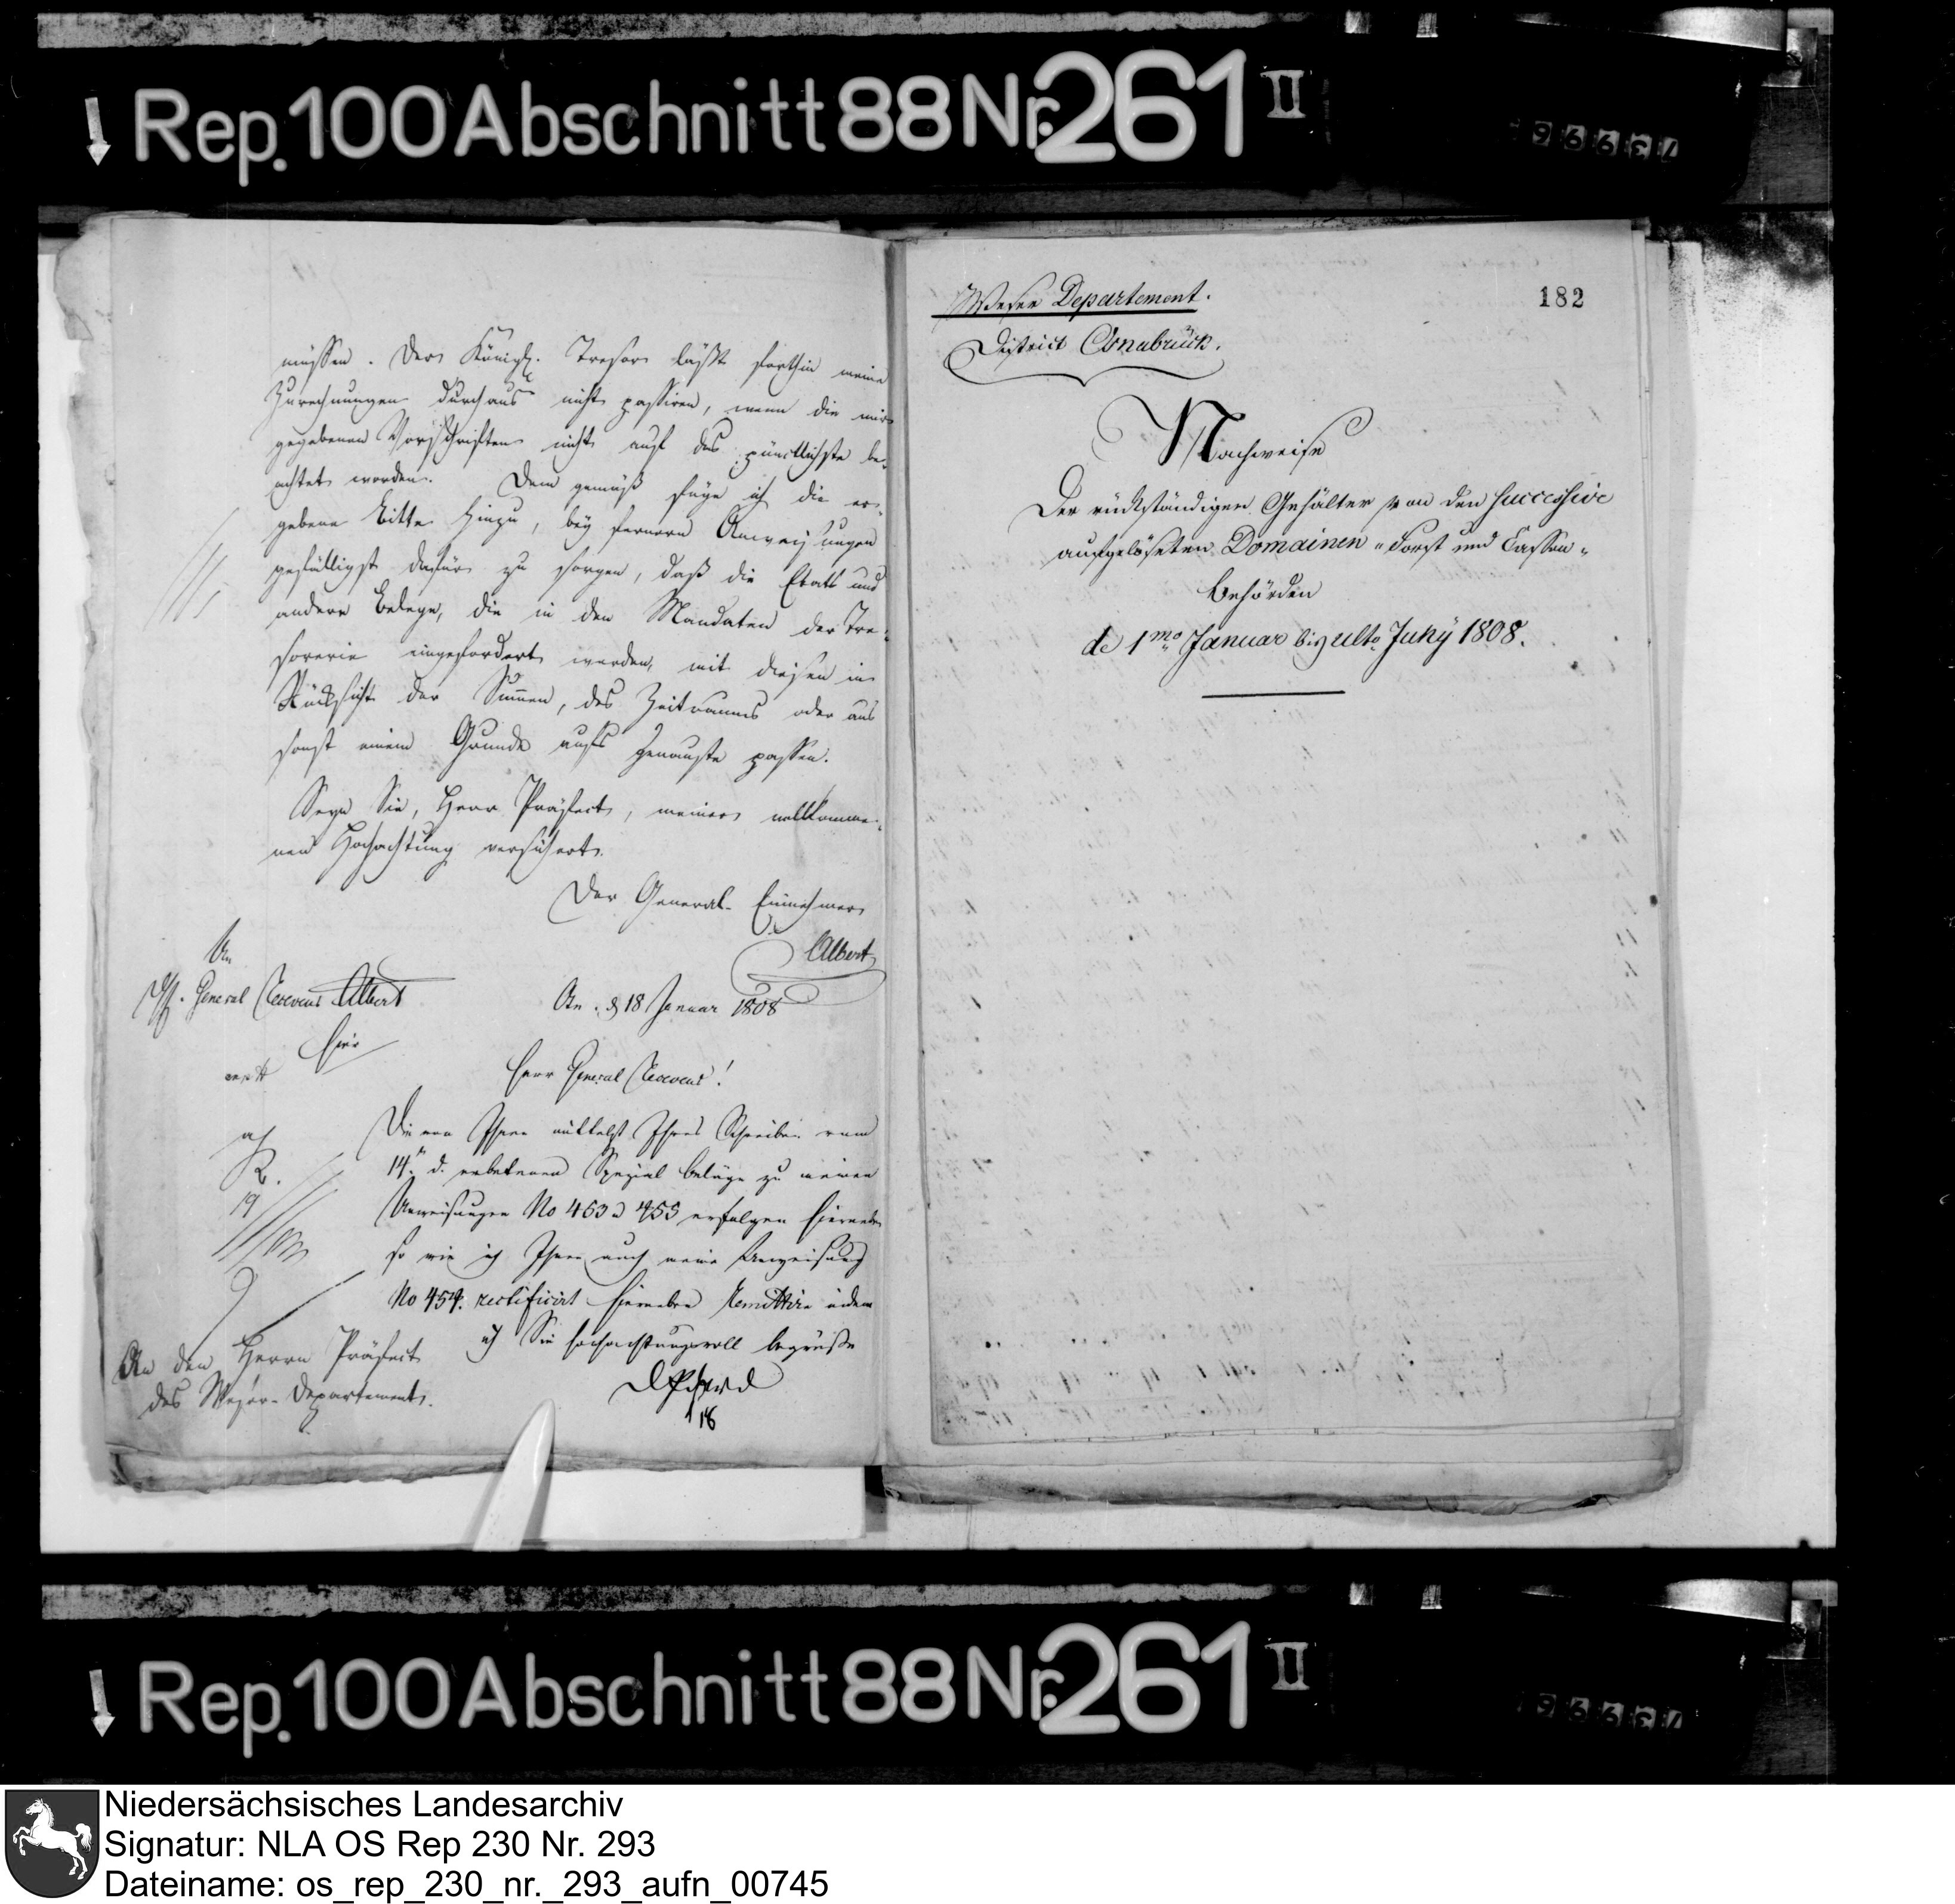 Rep. 100 Abschnitt 88 Nr. 261 II
müssen. Der Königl. Tresor läßt forthin meine
Zurechnungen durchaus nicht passiren, wenn die mir
gegebenen Vorschriften nicht auf das pünctlichste be-
achtet worden. Dem gemäß füge ich die er-
gebene Bitte hinzu, bey fernern Anweisungen
gefälligst dafür zu sorgen, daß die Etats und
andere Belege, die in den Mandaten der Tre-
sorerie eingefordert werden, mit diesen in
Rücksicht der Summen, des Zeitraums oder aus
sonst einem Grunde aufs genauste passen.
Seyn Sie, Herr Präfect, meiner vollkomme-
nen Hochachtung versichert.
Der General-Einnehmer
Albert
An
General Receveur Albert
hier
18 Januar 1808
Herr General Receveur!
Die von Ihnen mittelst Ihres Schreiben vom
14. d. erbetenen Spezial Beläge zu meinen
Anweisungen No 453 455 erfolgen hierneben
so wie ich Ihnen auch meine Anweisung
No 454. rectificirt hierneben remittire indem
ich Sie hochachtungsvoll begrüße
18
19
An den Herrn Präfect
des Weser-Departements.
182
Weser Departement.
District Osnabrück.
Nachweise
Der rückständigen Gehälter von den successive
aufgelöseten Domainen- Forst und Cassen-
Behörden
de 1mo Januar bis ulto Juny 1808.
Rep. 100 Abschnitt 88 Nr. 261 II
Niedersächsisches Landesarchiv
Signatur: NLA OS Rep 230 Nr. 293
Dateiname: os_rep_230_nr._293_aufn_00745